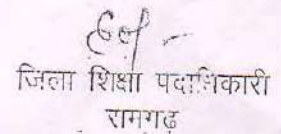 जिला शिक्षा पदाधिकारी
रामगढ़